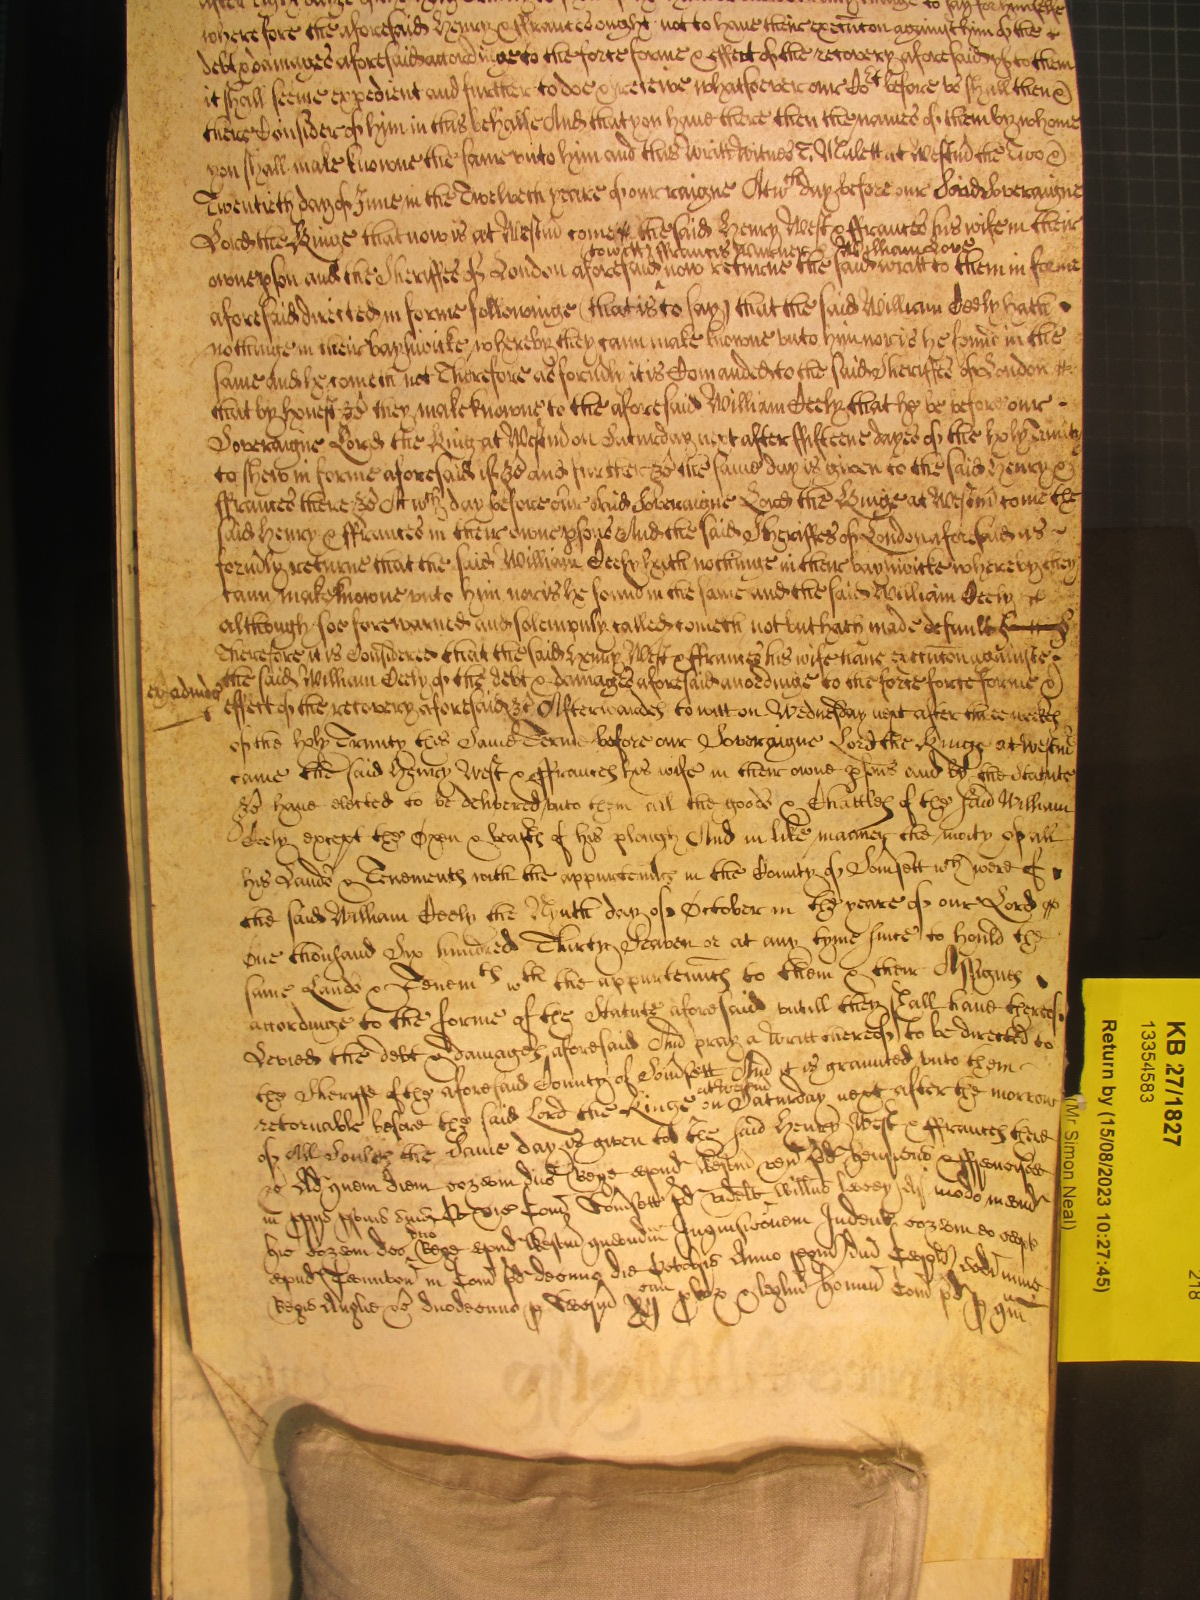 wherefore the aforesaid Henry & ffrances ought not to have their execucon against him of the
debt & damages aforesaid accordinge to the force forme & effect of the recovery aforesaid yf to them
it shall seeme expedient and further to doe & receive whatsoever our Cort before us shall then
there Consider of him in this behalfe And that you have there then the names of them by whome
you shall make knowne the same unto him and this Writt Witnes T. Mulett at Westm the
Twentieth day of June in the Twelveth yeare of our raigne At wch day before our said Soveraigne
Lord the Kinge that now is at Westm come the said Henry West & ffrances his wife in their
to witt ffrancis Warner & William Love
owne pson and the Sheriffes of London aforesaid now returne the said writt to them in forme
aforesaid directed in forme followinge (that is to say) that the said William Ceely hath
nothinge in their baylywicke whereby they cann make knowne unto him nor is he found in the
same and he cometh not Therefore as formdly it is Comanded to the said Sheriffes of London
that by honest &c they make knowne to the aforesaid William Ceely that he be before our
Soveraigne Lord the King at Westm on Saturday next after ffifteene dayes of the holy Trinity
to shew in forme aforesaid if &c and further &c the same day is given to the said Henry &
ffrances there &c At wch day before our said Soveraigne Lord the Kinge at Westm come the
said Henry & ffrances in their owne psons And the said Sheriffes of London aforesaid as
formdly returne that the said William Ceely hath nothinge in their baylywicke whereby they
cann make knowne unto him nor is he found in the same and the said William Ceely
although soe forewarned and solempnly called cometh not but hath made default
Therefore it is Considered that the said Henry West & ffrances his wife have execution againste
the said William Ceely of the debt & damages aforesaid accordinge to the force forme &
effect of the recovery aforesaid &c Afterwardes to witt on Wednesday next after three weekes
of the holy Trinity this Same Terme before our Soveraigne Lord the Kinge at Westm
came the said Henry West & ffrances his wife in their owne psons and by the Statute
&c have elected to be delivered unto them all the goods & Chattles of the said William
Ceely except the Oxen & beasts of his plough And in like manner the moity of all
his Lands & Tenements with the appurtennces in the County of Somsett wch were of
the said William Ceely the Nynth day of October in the yeare of our Lord
One thousand Six hundred Thirty Seaven or at any tyme since to hould the
same Lands & Tenemts wth the appurtenncs to them & their Assignes
accordinge to the forme of the Statute aforesaid untill they shall have thereof
Levied the debt & damages aforesaid And pray a Writt thereof to be directed to
the Sheriffe of the aforesaid County of Somsett And it is graunted unto them
at Westm
retornable before the said Lord the Kinge on Saturday next after the morrow
of All Soules the Same day is given to the said Henry West & ffrances there
&c Ad quem diem coram dno Rege apud Westm ven pd Henricus & ffrancisca
in pprijs psonis suis Et vic Com Somsett pd videlt Willus Ceely modo mand
hic coram dco dno Rege apud Westm quandam Inquisiconem Indent coram eo cept
apud Taunton in Com pd decimo die Octobris Anno regni dni Caroli nunc
Regis Anglie &c duodecimo p sacrm xij pbor & legalm hominu Com pd p qm
KB 27/1827
13354583
Return by (15/08/2023 10:27:45)
(Mr Simon Neal)
218